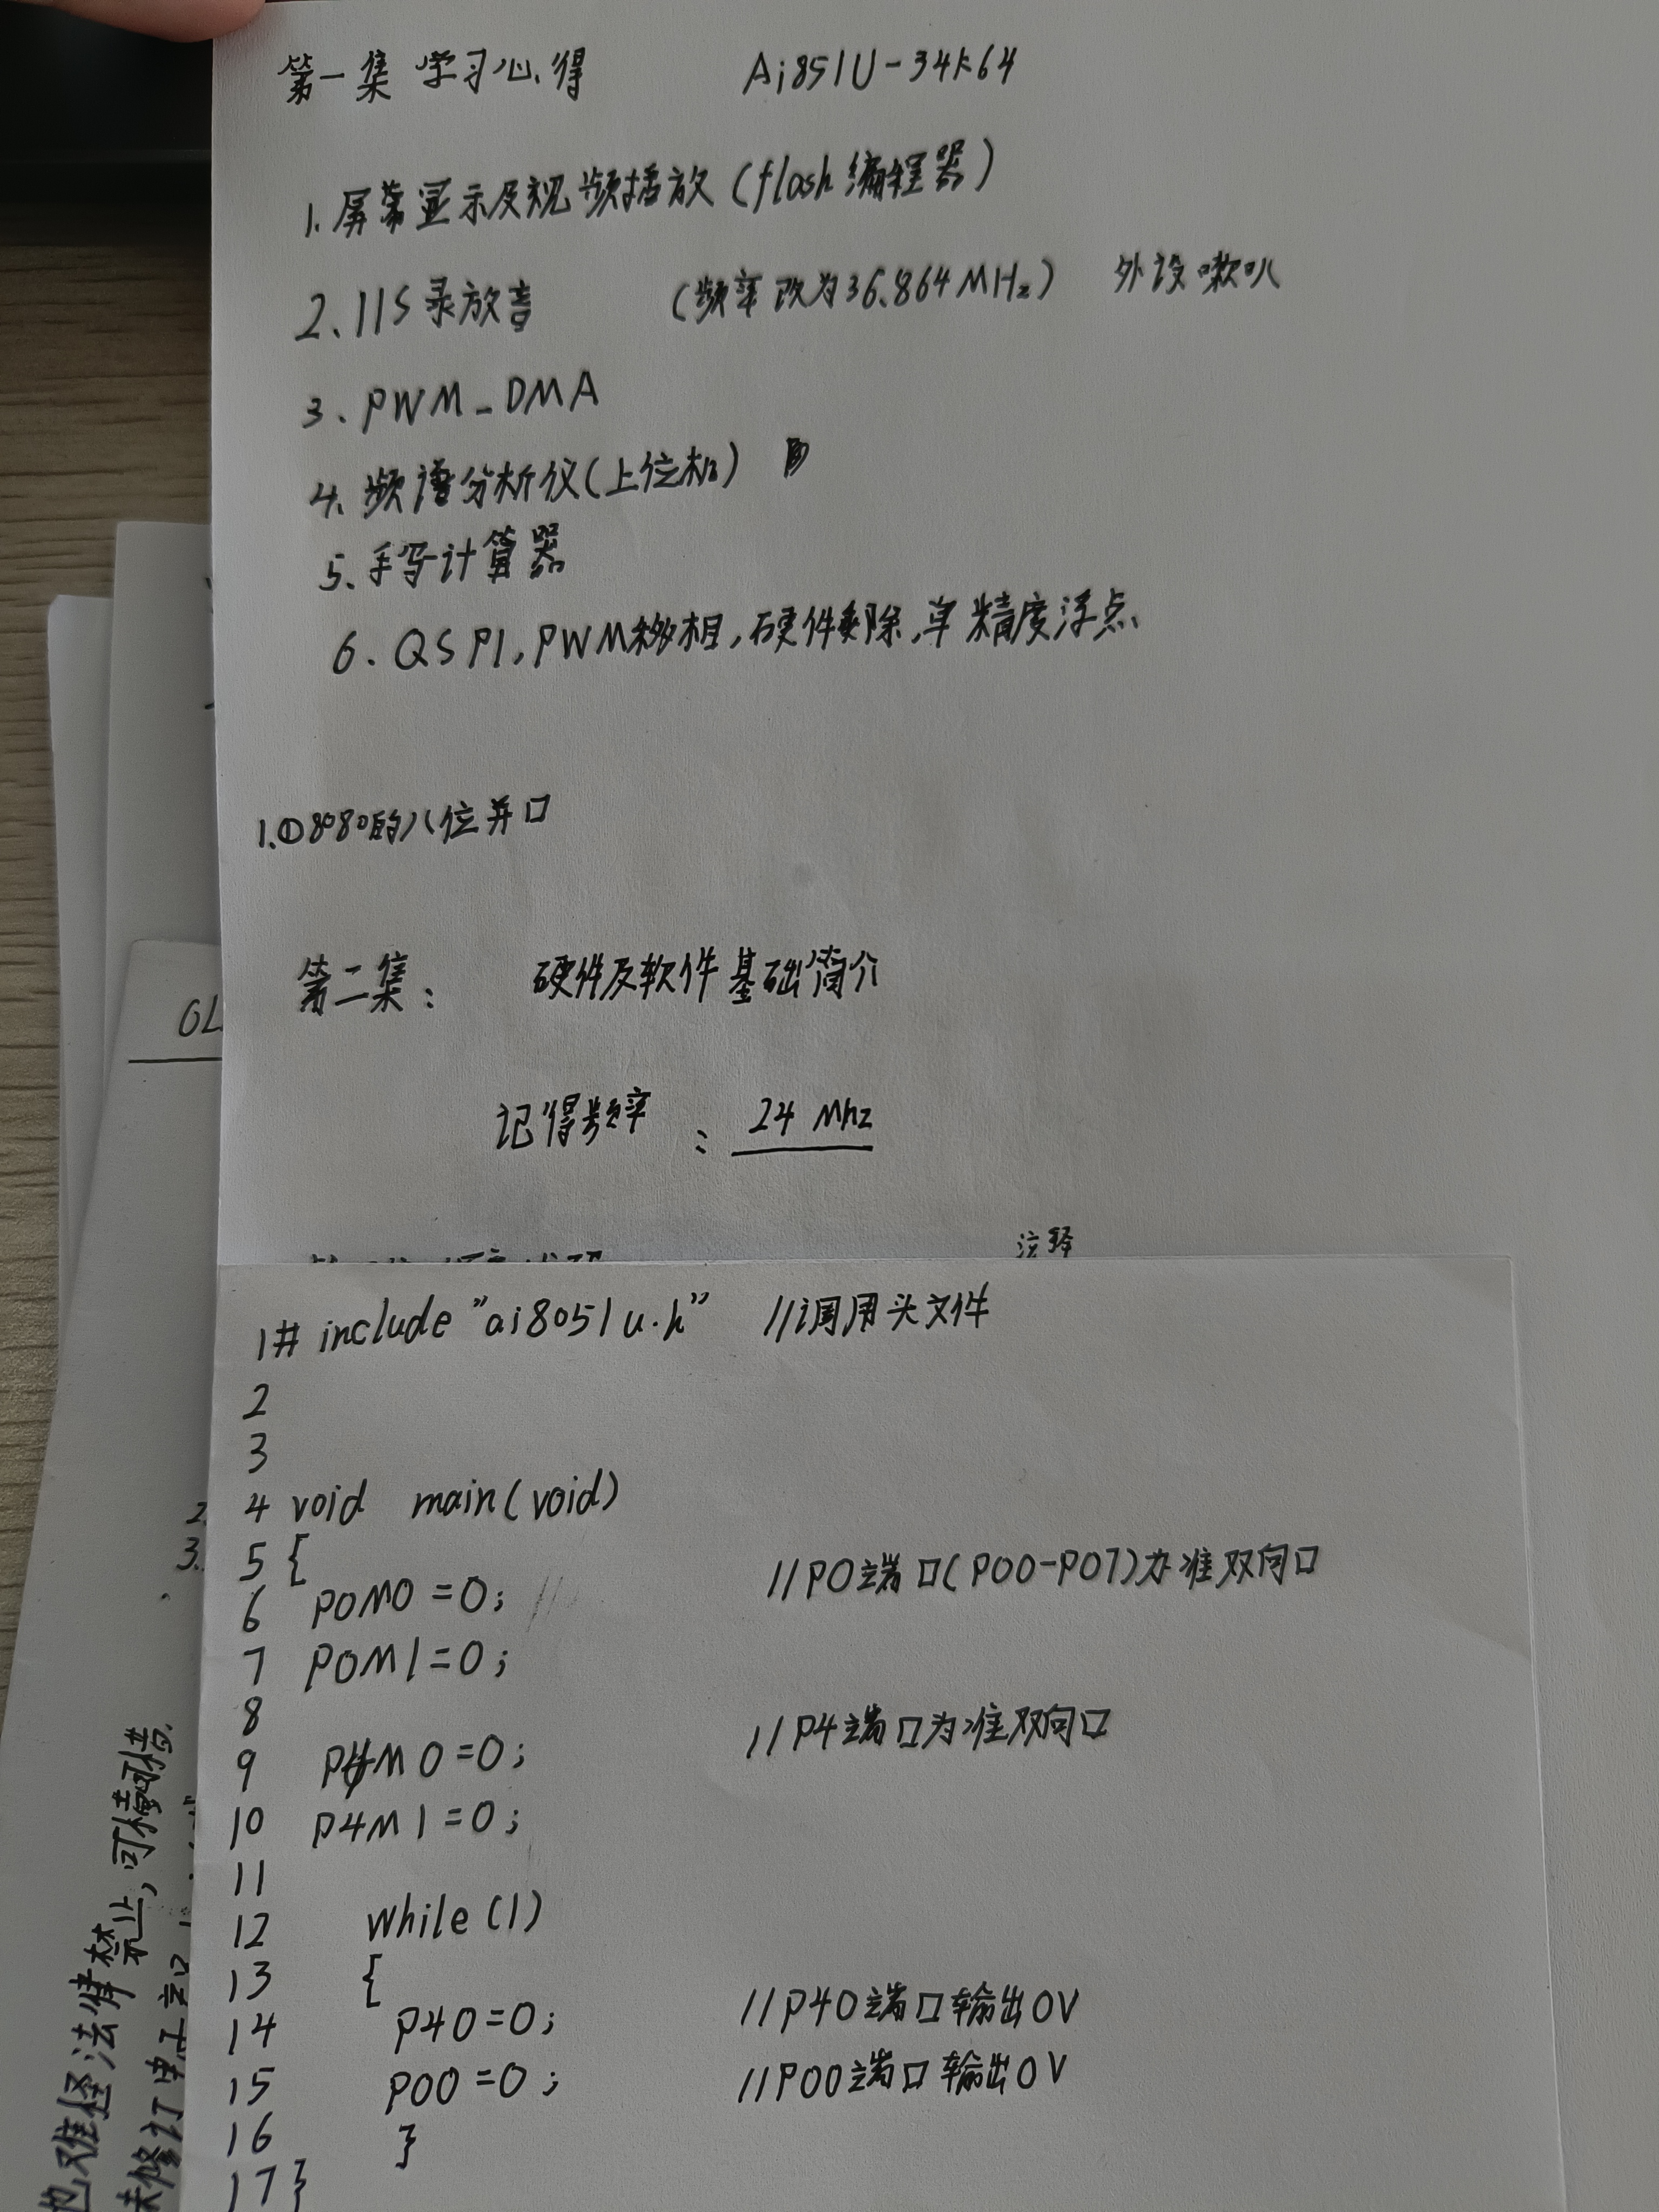 第一集 学习心得 Ai851U-34k64
1.屏幕显示及视频播放(flash编程器)
2.IIS录放音 (频率改为36.864MHz) 外设喇叭
3.PWM_DMA
4.频谱分析仪(上位机)
5.手写计算器
6.QSPI,PWM移相,硬件乘除,单精度浮点
1.①8080的八位并口
第二集: 硬件及软件基础简介
记得频率: 24 Mhz
注释
1# include "ai8051u.h" //调用头文件
2
3
4 void main(void)
5 {
6 P0M0=0; //P0端口(P00-P07)为准双向口
7 P0M1=0;
8
9 P4M0=0; //P4端口为准双向口
10 P4M1=0;
11
12 while(1)
13 {
14 P40=0; //P40端口输出0V
15 P00=0; //P00端口输出0V
16 }
17 }
OL
2.
3.
也难怪法律禁止,可惜可惜.